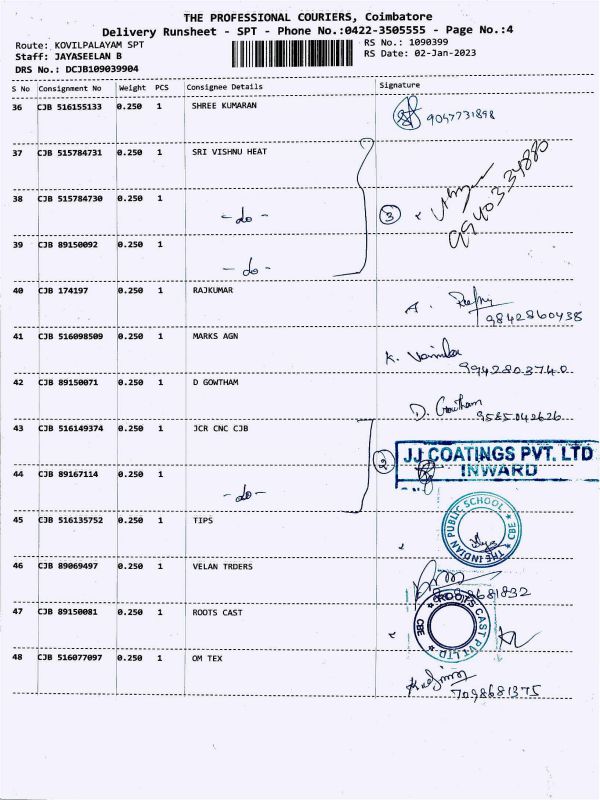 THE PROFESSIONAL COURIERS, Coimbatore
Delivery Runsheet - SPT - Phone No.:0422-3505555 - Page No.:4
Route: KOVILPALAYAM SPT
RS No.: 1090399
Staff: JAYASEELAN B
RS Date: 02-Jan-2023
DRS No.: DCJB109039904
S No Consignment No Weight PCS Consignee Details Signature
36 CJB 516155133 0.250 1 SHREE KUMARAN
9047731898
37 CJB 515784731 0.250 1 SRI VISHNU HEAT
38 CJB 515784730 0.250 1
-do- 3 9940334880
39 CJB 89150092 0.250 1
-do-
40 CJB 174197 0.250 1 RAJKUMAR
9842860438
41 CJB 516098509 0.250 1 MARKS AGN
K.
9942803740
42 CJB 89150071 0.250 1 D GOWTHAM
D. Gowtham 9585042626
43 CJB 516149374 0.250 1 JCR CNC CJB
2 JJ COATINGS PVT. LTD
INWARD
44 CJB 89167114 0.250 1
-do-
45 CJB 516135752 0.250 1 TIPS
THE INDIAN PUBLIC SCHOOL CBE
46 CJB 89069497 0.250 1 VELAN TRDERS
47 CJB 89150081 0.250 1 ROOTS CAST
ROOTS CAST PVT LTD CBE
48 CJB 516077097 0.250 1 OM TEX
7098681375